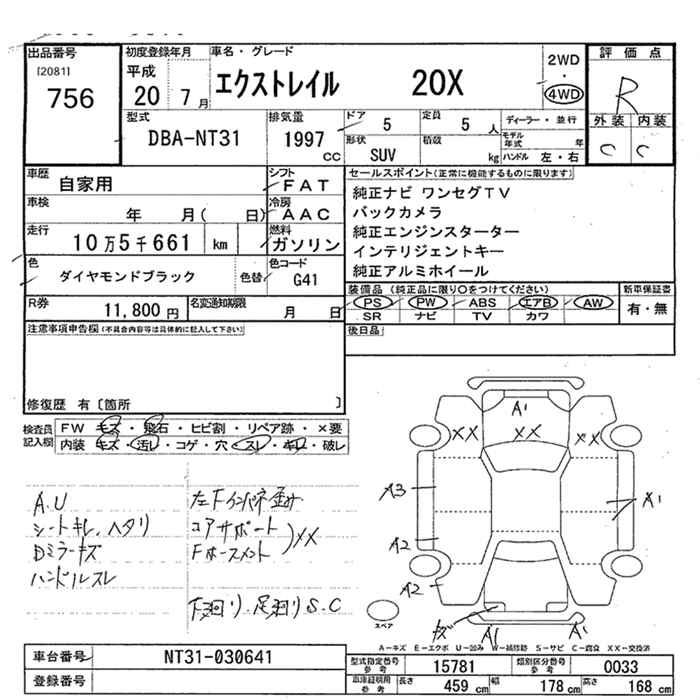 出品番号
[2081]
756
初度登録年月
平成
20 7月
車名・グレード
エクストレイル 20X
2WD
・
4WD
評価点
R
外装 内装
C C
型式
DBA-NT31
排気量
1997 cc
ドア 5
定員 5人
形状 SUV
積載 kg
ディーラー・並行
モデル年式 年
ハンドル 左・右
車歴 自家用
車検 年 月( 日)
走行 10万5千661 km
シフト FAT
冷房 AAC
燃料 ガソリン
色 ダイヤモンドブラック 色替
色コード G41
R券 11,800円
名変通知期限 月 日
セールスポイント(正常に機能するものに限ります)
純正ナビ ワンセグTV
バックカメラ
純正エンジンスターター
インテリジェントキー
純正アルミホイール
装備品(純正品に限り○をつけてください)
PS PW ABS エアB AW
SR ナビ TV カワ
新車保証書
有・無
後日品
注意事項申告欄(不具合内容等は具体的に記入して下さい)
修復歴 有〔箇所 〕
検査員記入欄
FW キズ・飛石・ヒビ割・リペア跡・×要
内装 キズ・汚レ・コゲ・穴・スレ・キレ・破レ
A.U
シートキレ、ヘタリ
Dミラーキズ
ハンドルスレ
左Fインパネ歪み
コアサポート
Fホースメント
)XX
下廻り.足廻りS.C
A1
XX XX XX
A3
A1
A2
A2
キズ A1 A1
スペア
A-キズ E-エクボ U-凹み W-補修跡 S-サビ C-腐食 XX-交換済
車台番号 NT31-030641
登録番号
型式指定番号 参考 15781
類別区分番号 参考 0033
車庫証明用 参考 長さ 459 cm 幅 178 cm 高さ 168 cm